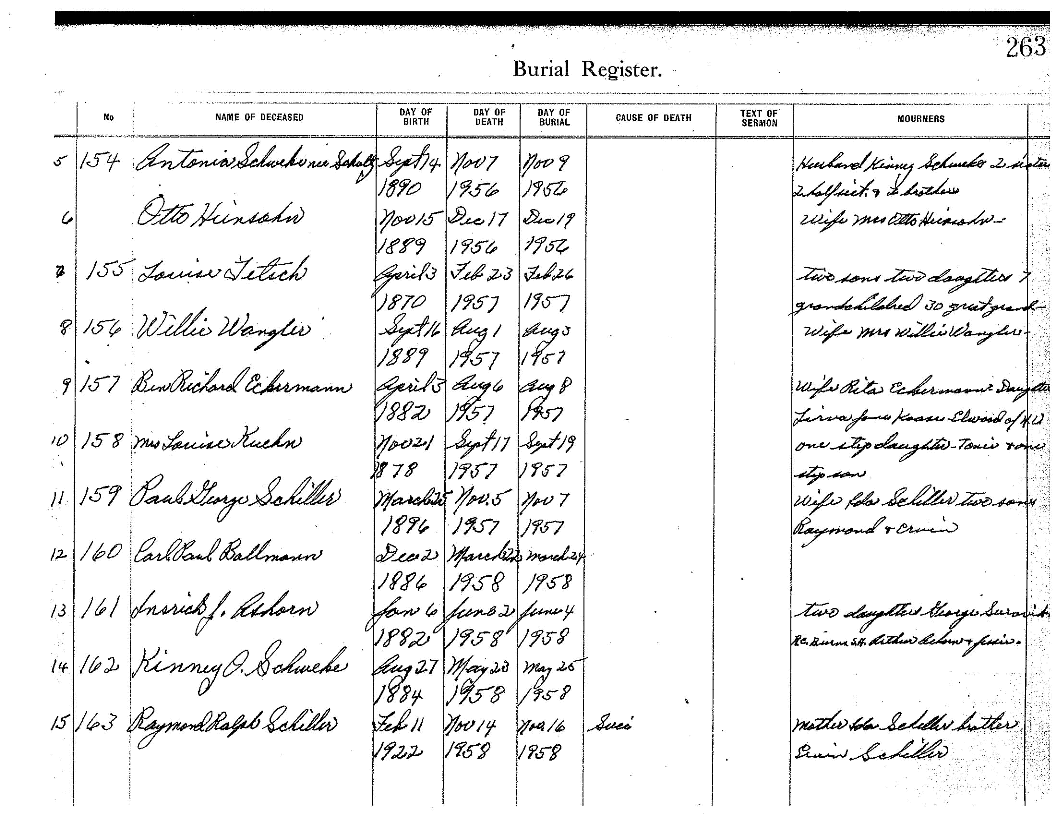 263
Burial Register.
No NAME OF DECEASED DAY OF BIRTH DAY OF DEATH DAY OF BURIAL CAUSE OF DEATH TEXT OF SERMON MOURNERS
5 154 Antonia Schwebe nee Scholz Sept 14 Nov 7 Nov 9 Husband Kinney Schwebe 2
1890 1956 1956 2 half sist. & 2 brothers
6 Otto Heinsohn Nov 15 Dec 17 Dec 19 Wife Mrs Otto Heinsohn
1889 1956 1956
7 155 Louise Fetsch April 3 Feb 23 Feb 26 two sons two daughters 7
1870 1957 1957 grandchildred 30 great grand
8 156 Willie Wangler Sept 16 Aug 1 Aug 3 Wife Mrs Willie Wangler
1889 1957 1957
9 157 Ben Richard Eckermann April 3 Aug 6 Aug 8 Wife Rita Eckermann
1882 1957 1957 Elwood
10 158 Mrs Louise Kuehn Nov 21 Sept 17 Sept 19 one step daughter Tonie & one
1878 1957 1957 step son
11 159 Paul George Schiller March 25 Nov. 5 Nov 7 Wife Ida Schiller two sons
1896 1957 1957 Raymond & Erwin
12 160 Carl Paul Ballmann Dec 2 March 22 March 24
1886 1958 1958
13 161 J. Ashorn Jan 6 June 2 June 4 two daughters George
1882 1958 1958 Arthur Ashorn
14 162 Kinney O. Schwebe Aug 27 May 23 May 25
1884 1958 1958
15 163 Raymond Ralph Schiller Feb 11 Nov 14 Nov 16 Suci Mother Ida Schiller brother
1922 1958 1958 Erwin Schiller